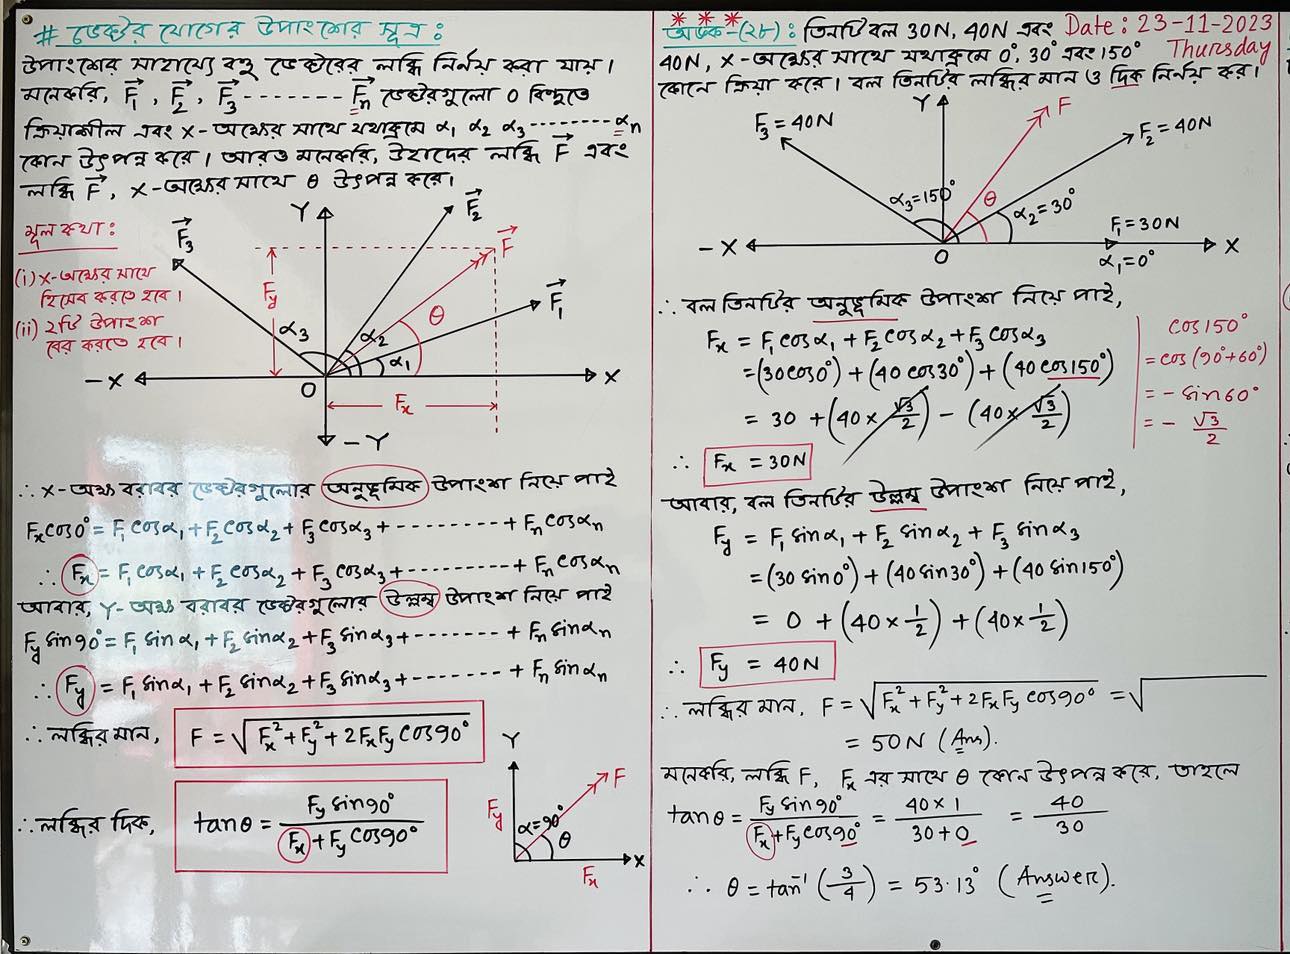 # ভেক্টর যোগের উপাংশের সূত্র :
উপাংশের সাহায্যে বহু ভেক্টরের লব্ধি নির্নয় করা যায়।
মনেকরি, F⃗₁ , F⃗₂ , F⃗₃ -------- F⃗n ভেক্টরগুলো O বিন্দুতে
ক্রিয়াশীল এবং X-অক্ষের সাথে যথাক্রমে α₁ α₂ α₃ -------- αn
কোন উৎপন্ন করে। আরও মনেকরি, উহাদের লব্ধি F⃗ এবং
লব্ধি F⃗, X-অক্ষের সাথে θ উৎপন্ন করে।
মূল কথা :
(i) X-অক্ষের সাথে
হিসেব করতে হবে।
(ii) ২টি উপাংশ
বের করতে হবে।
Y
F⃗₂
F⃗₃
F⃗
Fy
F⃗₁
θ
α₃
α₂
α₁
-X
O
X
Fx
-Y
∴ X-অক্ষ বরাবর ভেক্টরগুলোর অনুভূমিক উপাংশ নিয়ে পাই
Fx cos0° = F₁ cosα₁ + F₂ cosα₂ + F₃ cosα₃ + --------- + Fn cosαn
∴ Fx = F₁ cosα₁ + F₂ cosα₂ + F₃ cosα₃ + --------- + Fn cosαn
আবার, Y-অক্ষ বরাবর ভেক্টরগুলোর উল্লম্ব উপাংশ নিয়ে পাই
Fy sin90° = F₁ sinα₁ + F₂ sinα₂ + F₃ sinα₃ + ------- + Fn sinαn
∴ Fy = F₁ sinα₁ + F₂ sinα₂ + F₃ sinα₃ + ------- + Fn sinαn
∴ লব্ধির মান, F = √(Fx² + Fy² + 2FxFy cos90°)
∴ লব্ধির দিক, tanθ = Fy sin90° / (Fx + Fy cos90°)
Y
F
Fy
α=90°
θ
X
Fx
* * *
অংক-(২৮) : তিনটি বল 30N, 40N এবং
Date : 23-11-2023
Thursday
40N, X-অক্ষের সাথে যথাক্রমে 0°, 30° এবং 150°
কোনে ক্রিয়া করে। বল তিনটির লব্ধির মান ও দিক নির্নয় কর।
Y
F
F₃ = 40N
F₂ = 40N
α₃=150°
θ
α₂ = 30°
F₁ = 30N
-X
O
X
α₁=0°
∴ বল তিনটির অনুভূমিক উপাংশ নিয়ে পাই,
Fx = F₁ cosα₁ + F₂ cosα₂ + F₃ cosα₃
= (30cos0°) + (40 cos30°) + (40 cos150°)
= 30 + (40 × √3/2) - (40 × √3/2)
∴ Fx = 30N
cos150°
= cos(90°+60°)
= - sin60°
= - √3/2
আবার, বল তিনটির উল্লম্ব উপাংশ নিয়ে পাই,
Fy = F₁ sinα₁ + F₂ sinα₂ + F₃ sinα₃
= (30 sin0°) + (40 sin30°) + (40 sin150°)
= 0 + (40 × 1/2) + (40 × 1/2)
∴ Fy = 40N
∴ লব্ধির মান, F = √(Fx² + Fy² + 2FxFy cos90°) = √
= 50N (Ans).
মনেকরি, লব্ধি F, Fx এর সাথে θ কোন উৎপন্ন করে, তাহলে
tanθ = Fy sin90° / (Fx + Fy cos90°) = 40×1 / (30+0) = 40/30
∴ θ = tan⁻¹ (3/4) = 53.13° (Answer).